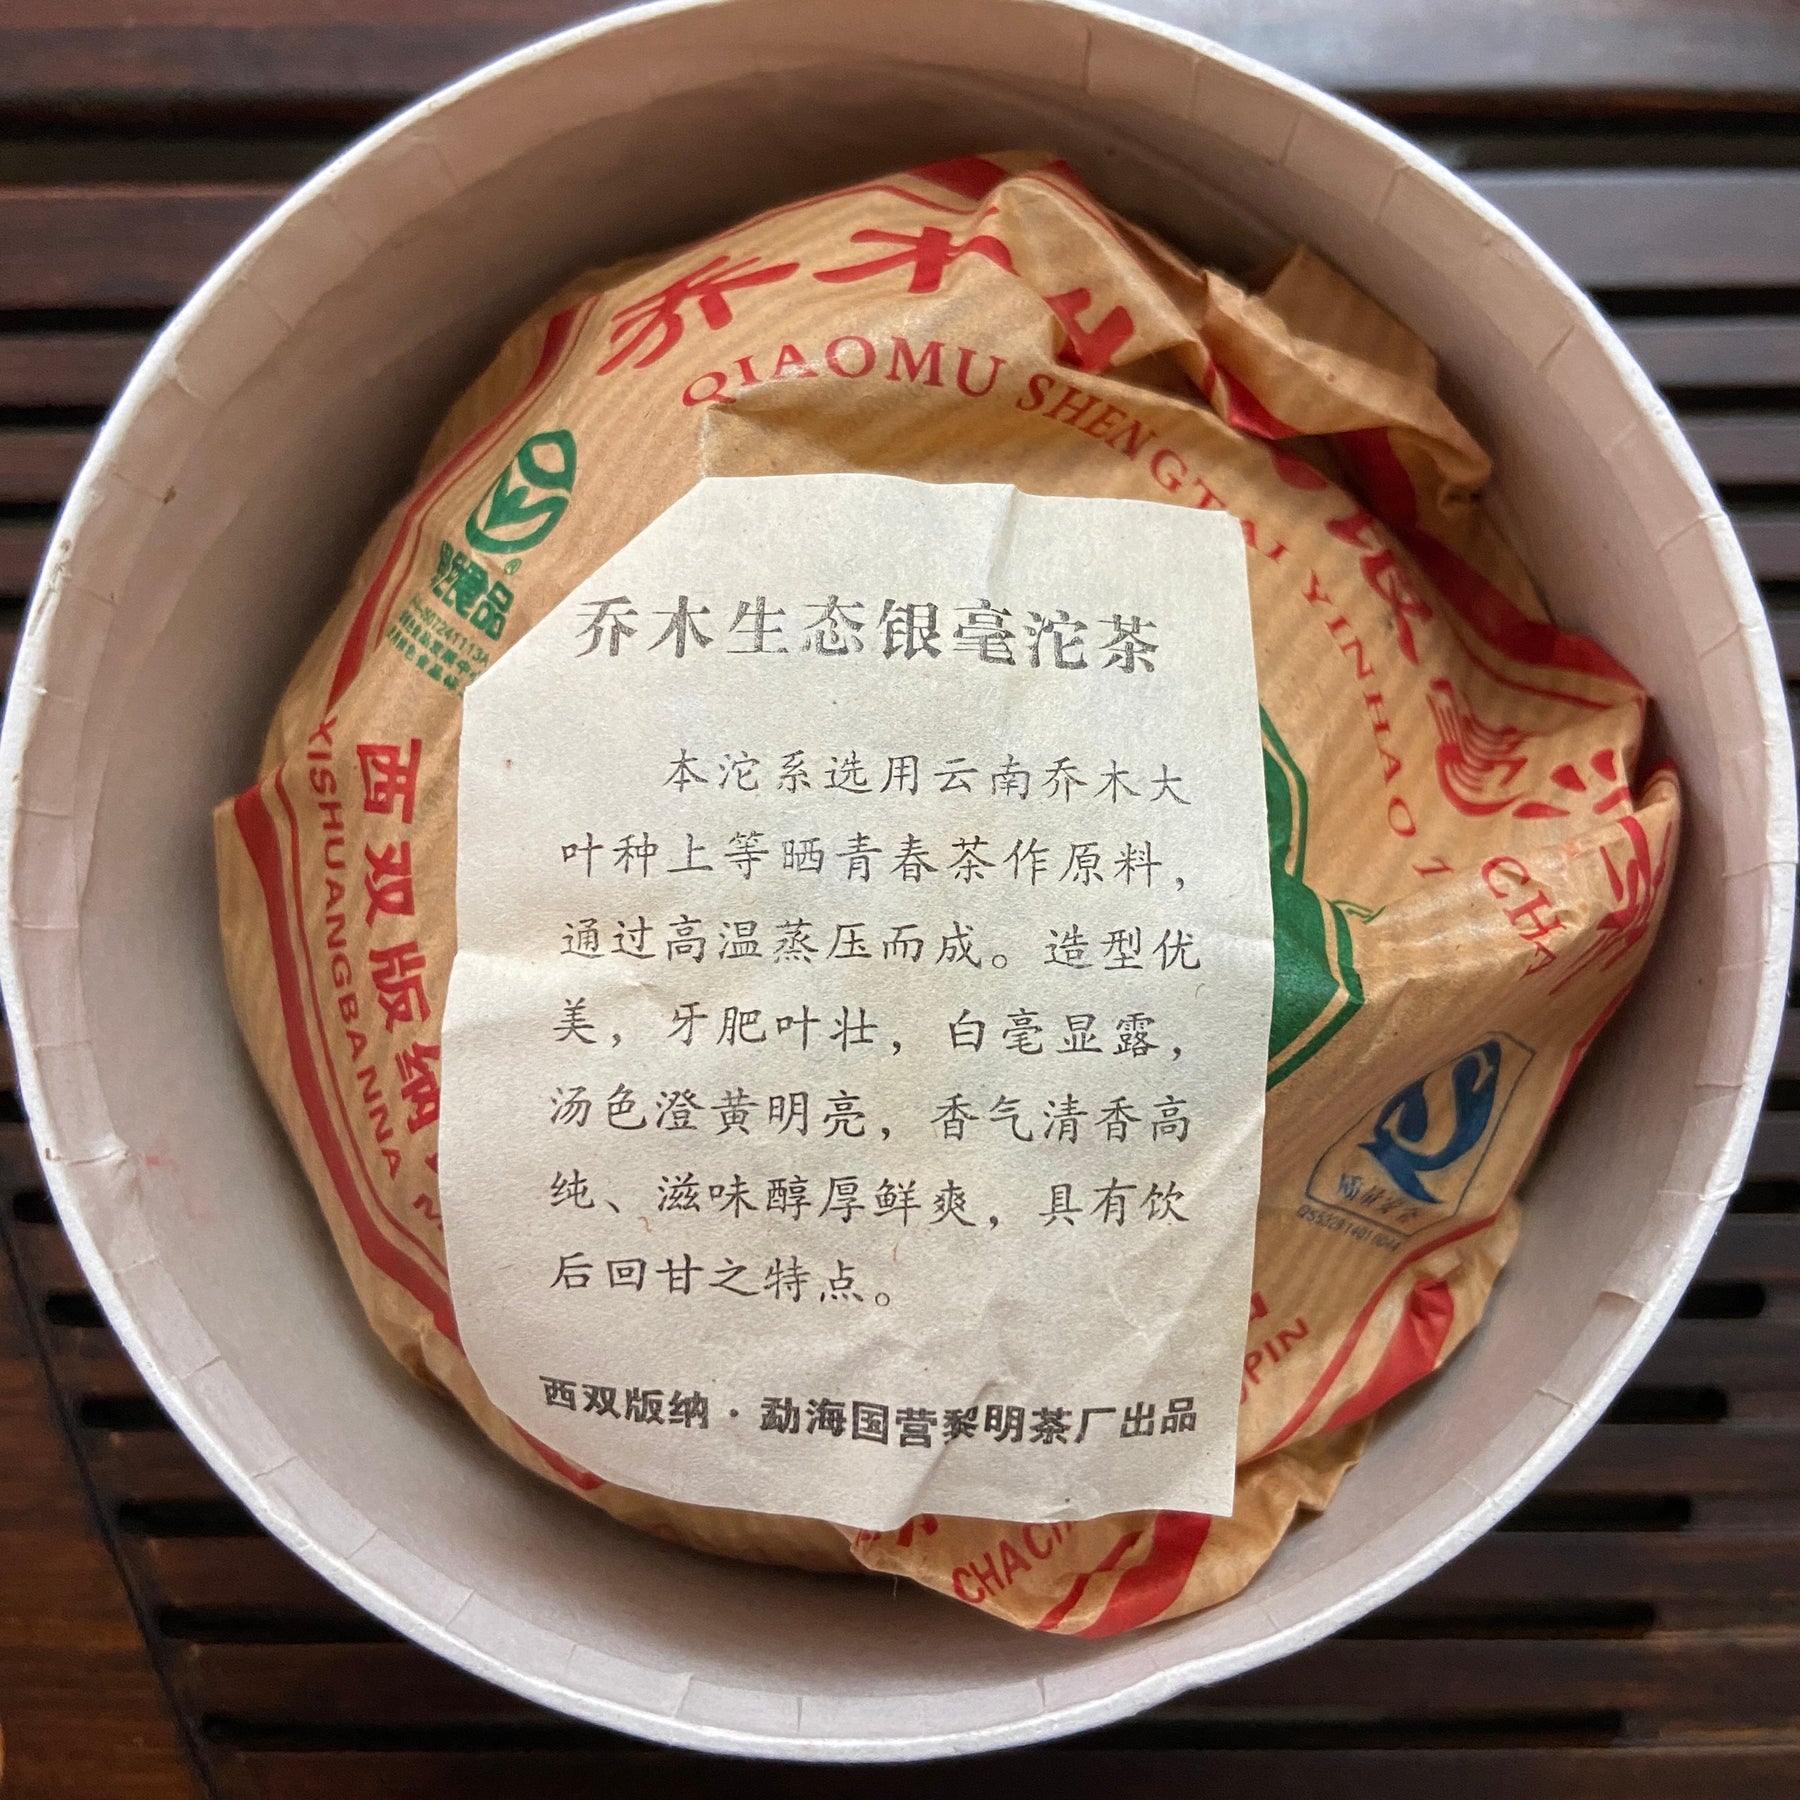 乔木生
QIAOMU SHENGTAI YINHAO
绿色食品
西双版纳
XISHUANGBANNA
乔木生态银毫沱茶
本沱系选用云南乔木大
叶种上等晒青春茶作原料，
通过高温蒸压而成。造型优
美，牙肥叶壮，白毫显露，
汤色澄黄明亮，香气清香高
纯、滋味醇厚鲜爽，具有饮
后回甘之特点。
西双版纳·勐海国营黎明茶厂出品
质量安全
PIN